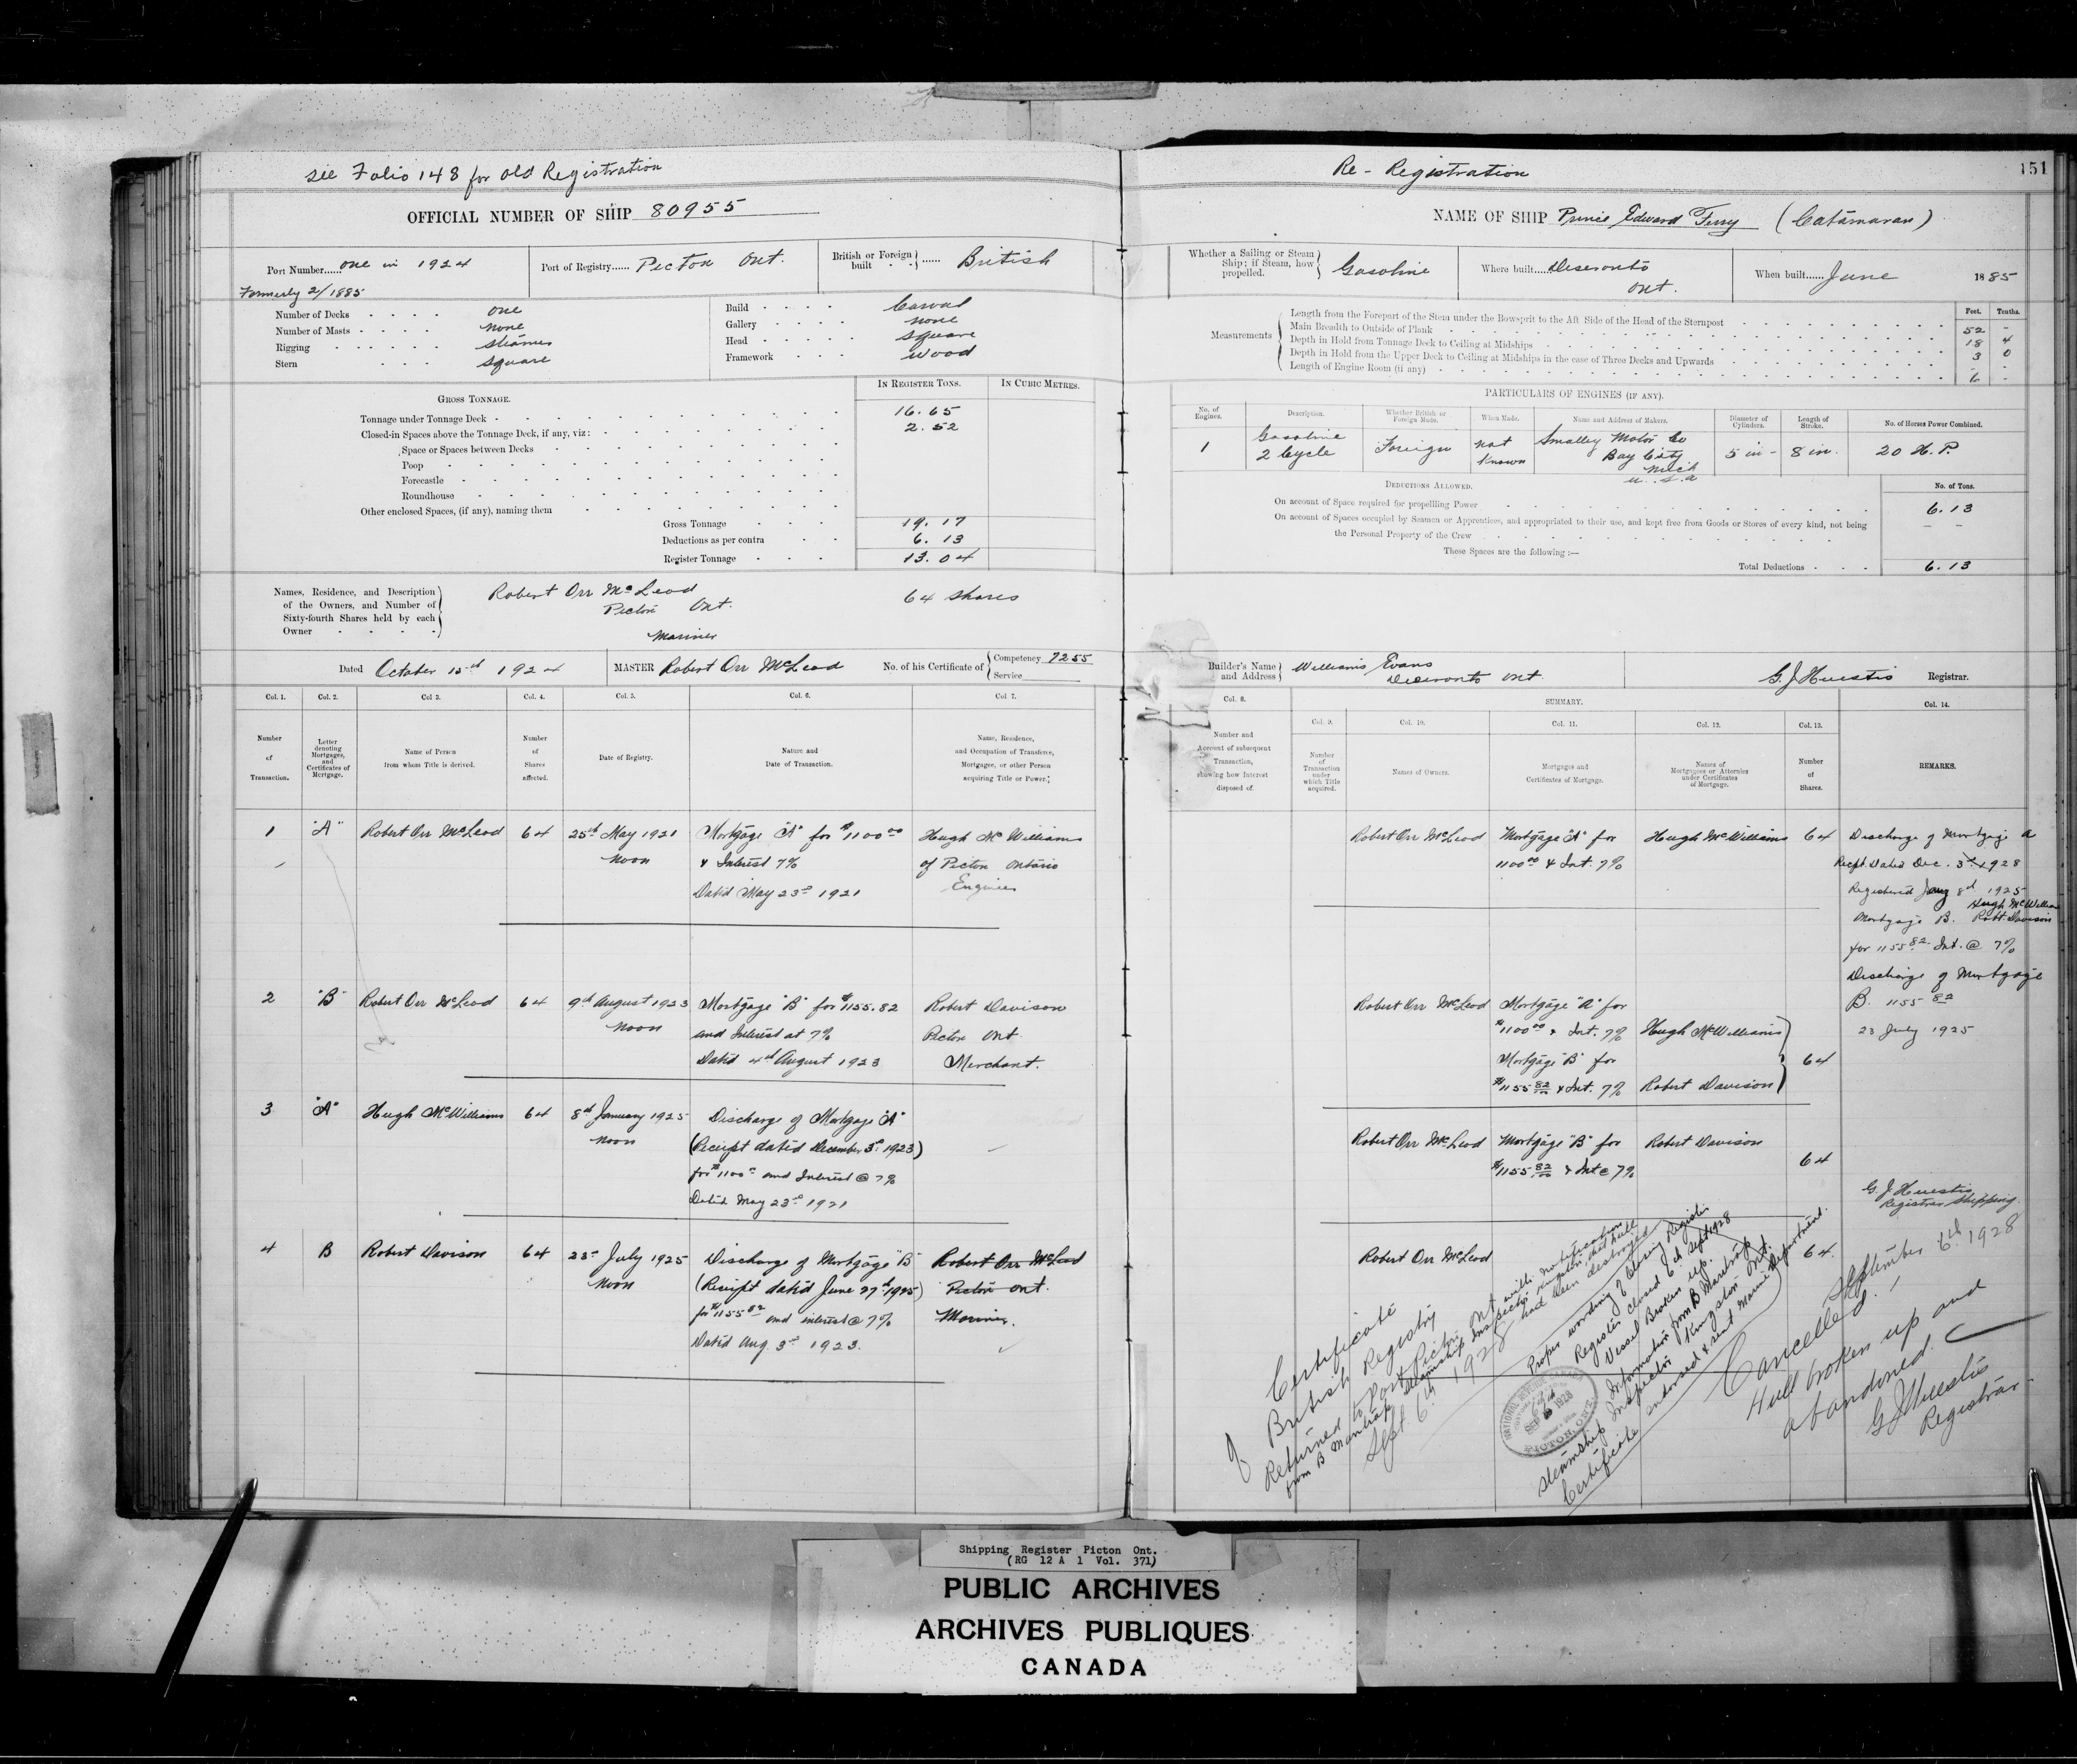 see Folio 148 for old Registration
OFFICIAL NUMBER OF SHIP 80955
Port Number...... one in 1924
Formerly 2/1885
Port of Registry...... Picton Ont.
British or Foreign built ...... British
Number of Decks one
Number of Masts none
Rigging steamer
Stern square
Build Carvel
Gallery none
Head square
Framework wood
IN REGISTER TONS. IN CUBIC METRES.
GROSS TONNAGE.
Tonnage under Tonnage Deck 16.65
Closed-in Spaces above the Tonnage Deck, if any, viz: 2.52
Space or Spaces between Decks
Poop
Forecastle
Roundhouse
Other enclosed Spaces, (if any), naming them
Gross Tonnage 19.17
Deductions as per contra 6.13
Register Tonnage 13.04
Names, Residence, and Description
of the Owners, and Number of
Sixty-fourth Shares held by each
Owner
Robert Orr McLeod 64 shares
Picton Ont.
Mariner
Dated October 15th 1924
MASTER Robert Orr McLeod
No. of his Certificate of Competency 7255
Service
Col. 1. Col. 2. Col 3. Col. 4. Col. 5. Col. 6. Col 7.
Number of Transaction.
Letter denoting Mortgages, and Certificates of Mortgage.
Name of Person from whom Title is derived.
Number of Shares affected.
Date of Registry.
Nature and Date of Transaction.
Name, Residence, and Occupation of Transferee, Mortgagee, or other Person acquiring Title or Power.
1 "A" Robert Orr McLeod 64 25th May 1921 Mortgage "A" for $1100 00 Hugh McWilliams
Noon & Interest 7% of Picton Ontario
Dated May 23rd 1921 Engineer
2 "B" Robert Orr McLeod 64 9th August 1923 Mortgage "B" for $1155.82 Robert Davison
Noon and Interest at 7% Picton Ont.
Dated 4th August 1923 Merchant.
3 "A" Hugh McWilliams 64 8th January 1925 Discharge of Mortgage "A"
Noon (Receipt dated December 3rd 1923)
for $1100 and Interest @ 7%
Dated May 23rd 1921
4 B Robert Davison 64 23rd July 1925 Discharge of Mortgage "B" Robert Orr McLeod
Noon (Receipt dated June 27th 1925) Picton Ont.
for $1155 82 and interest @ 7% Mariner.
Dated Aug 3rd 1923.
Re-Registration
151
NAME OF SHIP Prince Edward Ferry (Catamaran)
Whether a Sailing or Steam Ship; if Steam, how propelled. Gasoline
Where built.... Deseronto Ont.
When built...... June 1885
Measurements
Feet. Tenths.
Length from the Forepart of the Stem under the Bowsprit to the Aft Side of the Head of the Sternpost 52 -
Main Breadth to Outside of Plank 18 4
Depth in Hold from Tonnage Deck to Ceiling at Midships 3 0
Depth in Hold from the Upper Deck to Ceiling at Midships in the case of Three Decks and Upwards - -
Length of Engine Room (if any) 6 -
PARTICULARS OF ENGINES (IF ANY).
No. of Engines. Description. Whether British or Foreign Made. When Made. Name and Address of Makers. Diameter of Cylinders. Length of Stroke. No. of Horses Power Combined.
1 Gasoline 2 Cycle Foreign not known Smalley Motor Co Bay City Mich U.S.A 5 in - 8 in. 20 H.P.
DEDUCTIONS ALLOWED. No. of Tons.
On account of Space required for propelling Power 6.13
On account of Spaces occupied by Seamen or Apprentices, and appropriated to their use, and kept free from Goods or Stores of every kind, not being - -
the Personal Property of the Crew
These Spaces are the following :—
Total Deductions 6.13
Builder's Name and Address Williams Evans
Deseronto Ont.
G. J Huestis Registrar.
Col. 8. SUMMARY. Col. 14.
Col. 9. Col. 10. Col. 11. Col. 12. Col. 13.
Number and Account of subsequent Transaction, showing how Interest disposed of.
Number of Transaction under which Title acquired.
Names of Owners.
Mortgages and Certificates of Mortgage.
Names of Mortgagees or Attornies under Certificates of Mortgage.
Number of Shares.
REMARKS.
Robert Orr McLeod Mortgage "A" for Hugh McWilliams 64
1100 00 & Int. 7%
Robert Orr McLeod Mortgage "A" for
$1100 00 & Int. 7% Hugh McWilliams
Mortgage "B" for 64
$1155 82 & Int. 7% Robert Davison
Robert Orr McLeod Mortgage "B" for Robert Davison
$1155 82 & Int @ 7% 64
Robert Orr McLeod 64
Discharge of Mortgage A
Recpt Dated Dec. 3rd 1928
Registered Jany 8th 1925
Hugh McWilliams
Mortgage B. Robt Davison
for 1155 82 Int. @ 7%
Discharge of Mortgage
B. 1155 82
23 July 1925
G. J Huestis
Registrar Shipping
September 6th 1928
Cancelled !
Hull broken up and
abandoned.
G J Huestis
Registrar
Certificate
of British Registry
Returned to Port Picton Ont with notification
from B Mantrap Steamship Inspector Kingston, that hull
Sept. 6th 1928 had been destroyed
Proper wording of Closing Register
Register closed 6th Sept 1928
Vessel Broken up.
Information from B Mantrap
Steamship Inspector Kingston Ont.
Certificate endorsed & sent Marine Department.
SEP 6 1928
PICTON, ONT.
Shipping Register Picton Ont.
(RG 12 A 1 Vol. 371)
PUBLIC ARCHIVES
ARCHIVES PUBLIQUES
CANADA